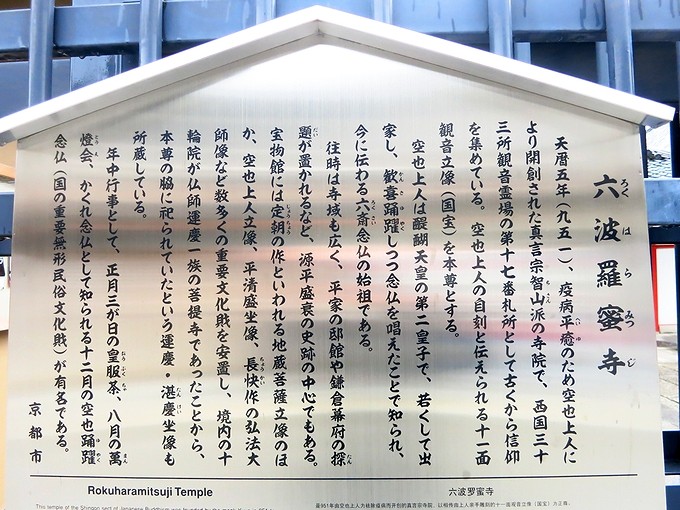 六波羅蜜寺
天暦五年(九五一)、疫病平癒のため空也上人に
より開創された真言宗智山派の寺院で、西国三十
三所観音霊場の第十七番札所として古くから信仰
を集めている。空也上人の自刻と伝えられる十一面
観音立像(国宝)を本尊とする。
空也上人は醍醐天皇の第二皇子で、若くして出
家し、歓喜踊躍しつつ念仏を唱えたことで知られ、
今に伝わる六斎念仏の始祖である。
往時は寺域も広く、平家の邸館や鎌倉幕府の探
題が置かれるなど、源平盛衰の史跡の中心でもある。
宝物館には定朝の作といわれる地蔵菩薩立像のほ
か、空也上人立像、平清盛坐像、長快作の弘法大
師像など数多くの重要文化財を安置し、境内の十
輪院が仏師運慶一族の菩提寺であったことから、
本尊の脇に祀られていたという運慶・湛慶坐像も
所蔵している。
年中行事として、正月三が日の皇服茶、八月の萬
燈会、かくれ念仏として知られる十二月の空也踊躍
念仏(国の重要無形民俗文化財)が有名である。
京都市
Rokuharamitsuji Temple
六波罗蜜寺